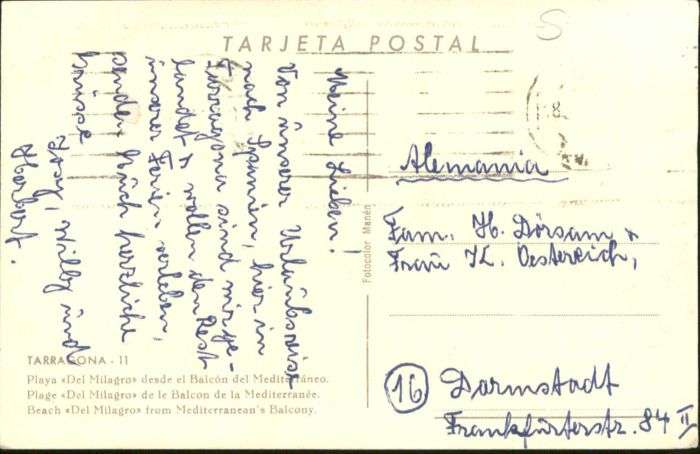 TARJETA POSTAL
Meine Lieben!
Von unserer Urlaubsreise
nach Spanien, hier in
Tarragona sind wir ge-
landet & wollen den Rest
unserer Ferien verleben,
senden Euch herzliche
Grüsse
Willy und
Herbert.
Alemania
Fam. H. Dörsam &
Frau K. Oestereich,
16 Darmstadt
Frankfurterstr. 84 II
Fotocolor Manén
TARRAGONA - 11
Playa «Del Milagro» desde el Balcón del Mediterráneo.
Plage «Del Milagro» de le Balcon de la Mediterranée.
Beach «Del Milagro» from Mediterranean's Balcony.